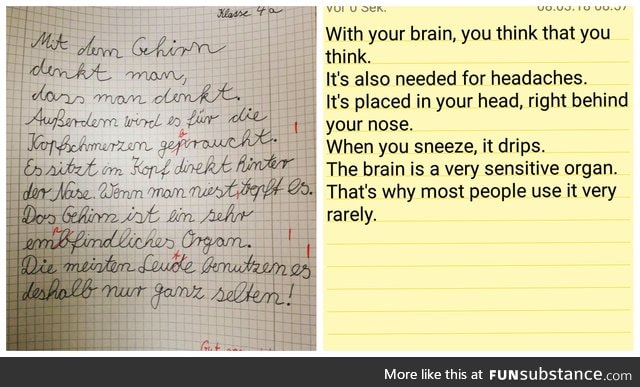 Klasse 4a
Mit dem Gehirn
denkt man,
dass man denkt.
Außerdem wird es für die
Kopfschmerzen gepraucht.
Es sitzt im Kopf direkt hinter
der Nase. Wenn man niest, tropft es.
Das Gehirn ist ein sehr
embfindliches Organ.
Die meisten Leude benutzen es
deshalb nur ganz selten!
vor 0 Sek.
With your brain, you think that you
think.
It's also needed for headaches.
It's placed in your head, right behind
your nose.
When you sneeze, it drips.
The brain is a very sensitive organ.
That's why most people use it very
rarely.
More like this at FUNsubstance.com